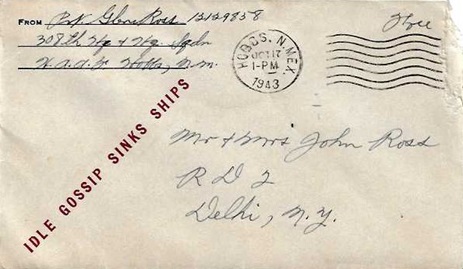 FROM Pvt Glen Ross 12129858
308th Hq + Hq Sqdn
H.A.A.F. Hobbs, N.M.
HOBBS, N. MEX.
OCT 17
1-PM
1943
Free
IDLE GOSSIP SINKS SHIPS
Mr + Mrs John Ross
R D 2
Delhi, N.Y.